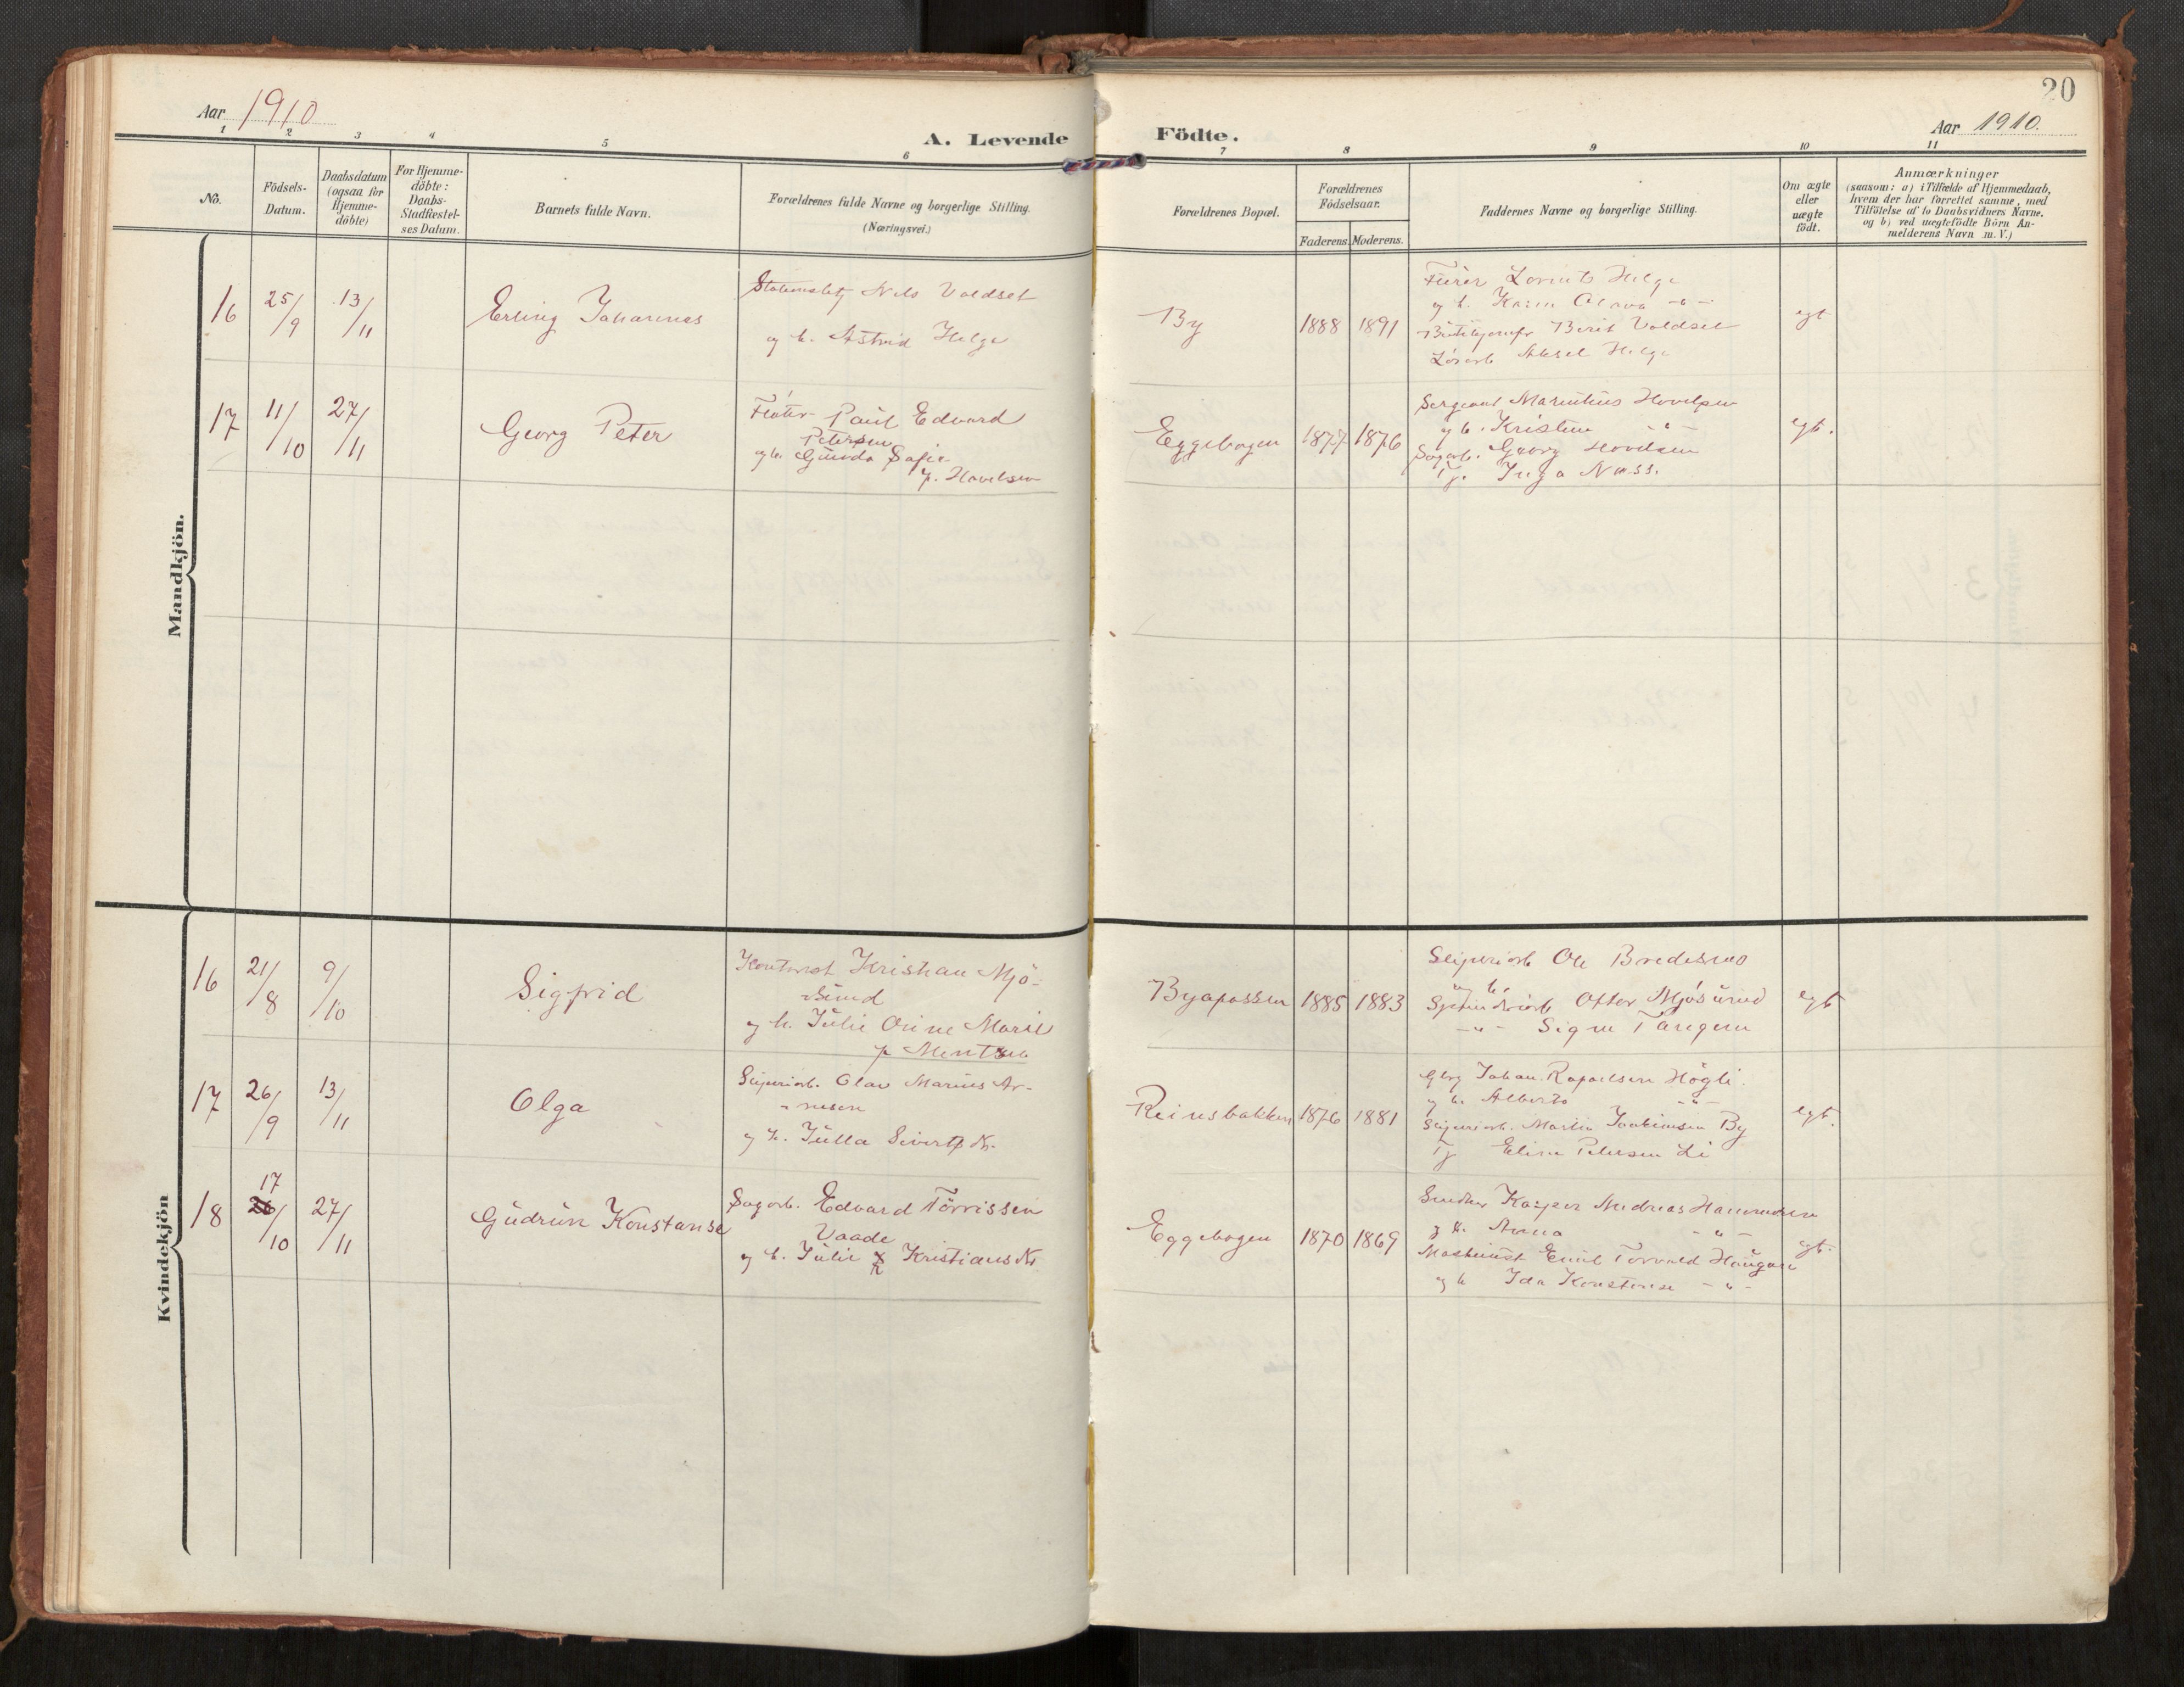 Aar 1910
20
Aar 1910.
A. Levende Födte.
1 2 3 4 5 6 7 8 9 10 11
No.
Födsels-
Datum.
Daabsdatum
(ogsaa for
Hjemme-
döbte)
For Hjemme-
döbte:
Daabs-
Stadfæstel-
ses Datum.
Barnets fulde Navn.
Forældrenes fulde Navne og borgerlige Stilling.
(Næringsvei.)
Forældrenes Bopæl.
Forældrenes
Födselsaar.
Faderens. Moderens.
Faddernes Navne og borgerlige Stilling.
Om ægte
eller
uægte
födt.
Anmærkninger
(saasom: a) i Tilfælde af Hjemmedaab,
hvem der har forrettet samme, med
Tilföielse af to Daabsvidners Navne,
og b) ved uægtefödte Börn An-
melderens Navn m. V.)
Mandkjön.
16
25/9
13/11
Erling Johannes
Nils Valdset
og h. Astrid Helge
By
1888
1891
Lorents Helge
og h. Karen Olava -"-
Berit Valdset
Aksel Helge
egt
17
11/10
27/11
Georg Peter
Fløter Paul Edvard
Petersen
og h. Gunda Sofie
f. Hovelsen
Eggebogen
1877
1876
Sergeant Marentius Hovelsen
og h. Kristine -"-
Sagarb. Georg Hovelsen
Tj. Inga Næss.
egt.
Kvindekjön
16
21/8
9/10
Sigfrid
Kontorist Kristian Mjö-
sund
og h. Julie Orine Marie
f. Mentzen
Byafossen
1885
1883
Sliperiarb Ole Bredesmo
og h.
Otter Mjösund
-"- Signe Tangen
egt
17
26/9
13/11
Olga
Sliperiarb. Olav Marius Ar-
nesen
og h. Julla Sivertsdtr.
Reinsbakken
1876
1881
Gbr Johan Rafaelsen Høgli.
og h. Alberta -"-
Sliperiarb. Martin Joakimsen By
Tj Eline Petersen Li
egt.
18
17
26/10
27/11
Gudrun Konstanse
Sagarb. Edvard Tørrissen
Vaade
og h. Julie Kristiansdtr
Eggebogen
1870
1869
Kasper Andreas
og h. Anna -"-
Maskinist Emil Torvald Haugan
og h Ida Konstanse -"-
egt.